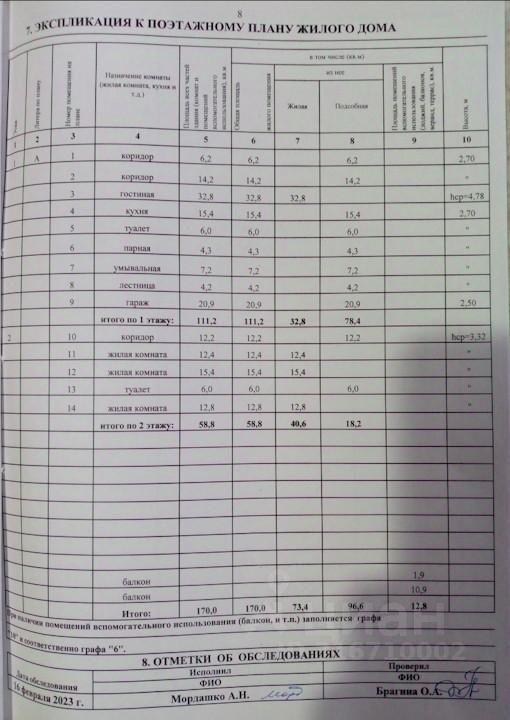 8
7. ЭКСПЛИКАЦИЯ К ПОЭТАЖНОМУ ПЛАНУ ЖИЛОГО ДОМА
Этаж | Литера по плану | Номер помещения на плане | Назначение комнаты (жилая комната, кухня и т.д.) | Площадь всех частей здания (комнат и помещений вспомогательного использования), кв.м | в том числе (кв.м) | Площадь помещений вспомогательного использования (лоджий, балконов, веранд, террас), кв.м | Высота, м
Общая площадь жилого помещения | из нее
Жилая | Подсобная
1 2 3 4 5 6 7 8 9 10
1 А 1 коридор 6,2 6,2 6,2 2,70
2 коридор 14,2 14,2 14,2 "
3 гостиная 32,8 32,8 32,8 hср=4,78
4 кухня 15,4 15,4 15,4 2,70
5 туалет 6,0 6,0 6,0 "
6 парная 4,3 4,3 4,3 "
7 умывальная 7,2 7,2 7,2 "
8 лестница 4,2 4,2 4,2 "
9 гараж 20,9 20,9 20,9 2,50
итого по 1 этажу: 111,2 111,2 32,8 78,4
2 10 коридор 12,2 12,2 12,2 hср=3,32
11 жилая комната 12,4 12,4 12,4 "
12 жилая комната 15,4 15,4 15,4 "
13 туалет 6,0 6,0 6,0 "
14 жилая комната 12,8 12,8 12,8 "
итого по 2 этажу: 58,8 58,8 40,6 18,2
балкон 1,9
балкон 10,9
Итого: 170,0 170,0 73,4 96,6 12,8
При наличии помещений вспомогательного использования (балкон, и т.п.) заполняется графа
"10" и соответственно графа "6".
8. ОТМЕТКИ ОБ ОБСЛЕДОВАНИЯХ
Дата обследования | Исполнил | Проверил
ФИО | ФИО
16 февраля 2023 г. Мордашко А.Н. Брагина О.А.
циан
6710002